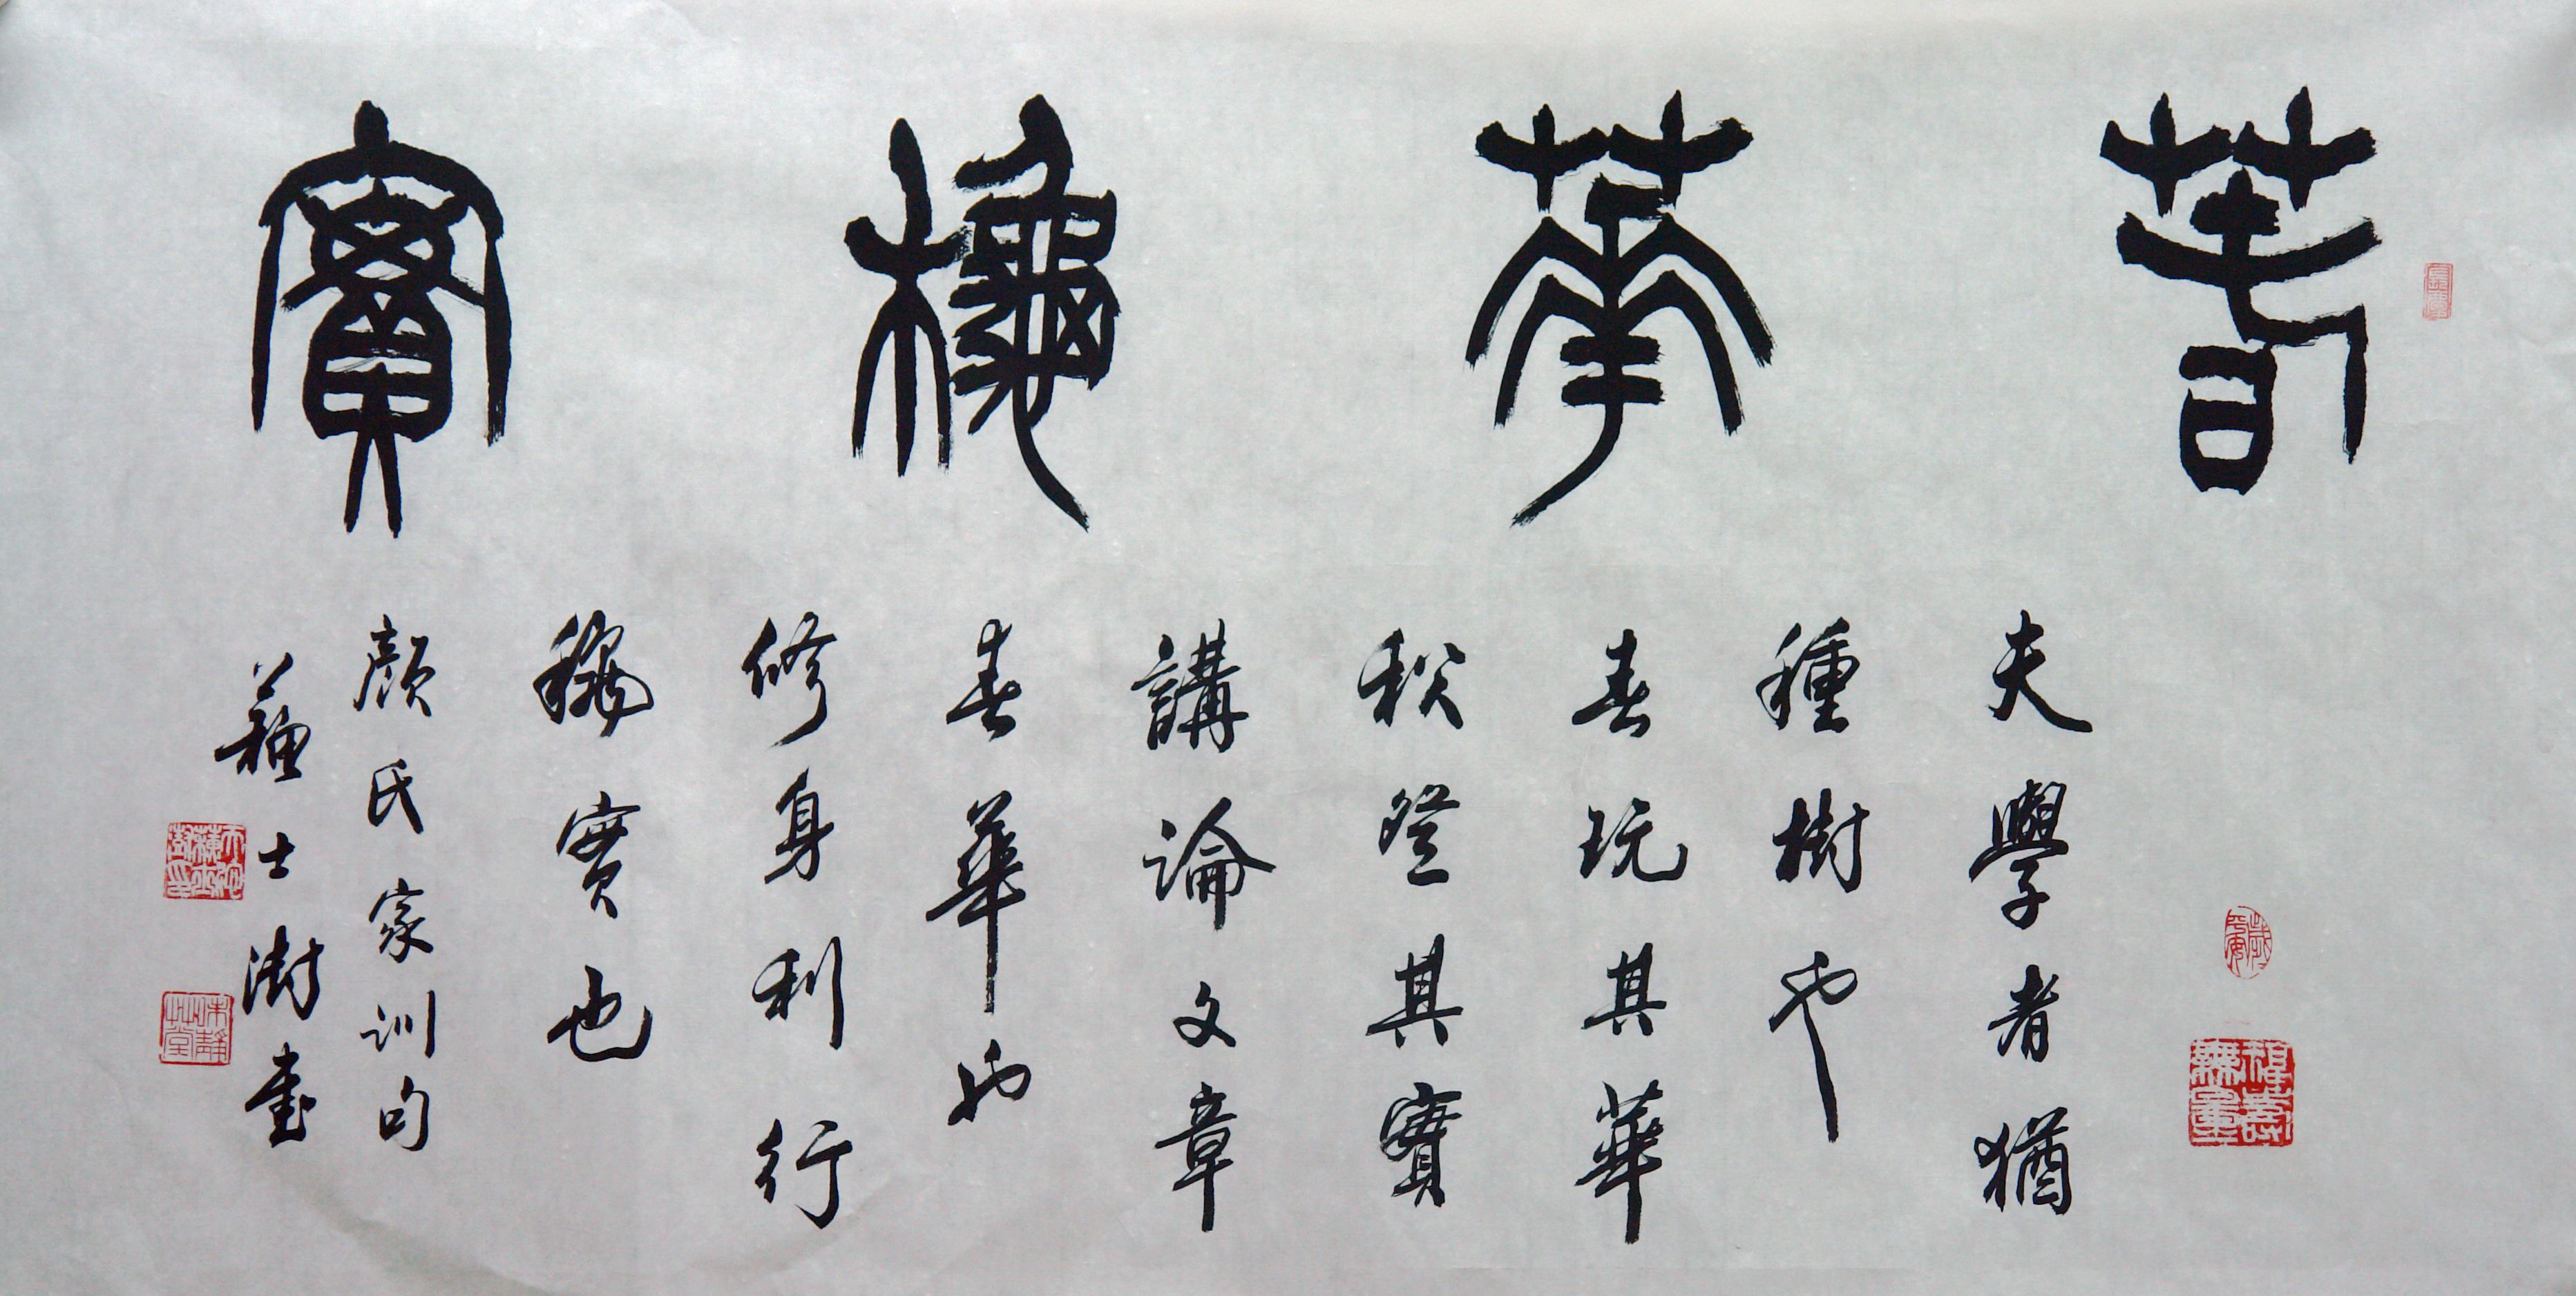 萅華穐實
夫學者猶
種樹也
春玩其華
秋登其實
講論文章
春華也
修身利行
穐實也
顏氏家訓句
蘓士澍書